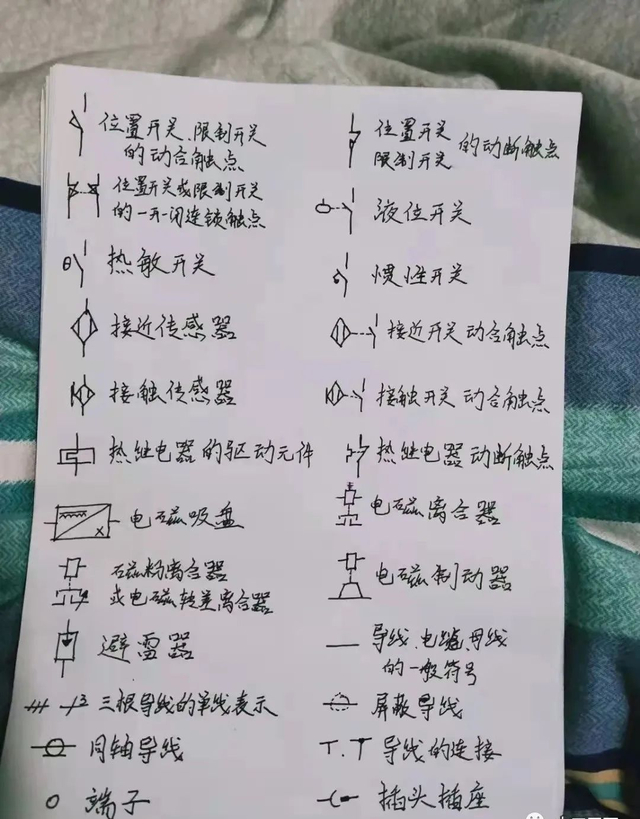 位置开关、限制开关
的动合触点
位置开关
限制开关 的动断触点
位置开关或限制开关
的一开一闭连锁触点
液位开关
θ 热敏开关
惯性开关
接近传感器
接近开关动合触点
接触传感器
接触开关动合触点
热继电器的驱动元件
热继电器动断触点
x 电磁吸盘
电磁离合器
磁粉离合器
或电磁转差离合器
电磁制动器
避雷器
导线、电缆、母线
的一般符号
3 三根导线的单线表示
屏蔽导线
同轴导线
导线的连接
端子
插头插座